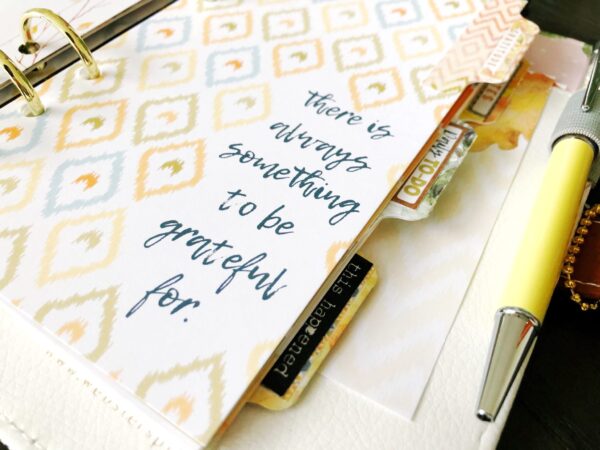 there is
always
something
to be
grateful
for.
TO-DO
this happened